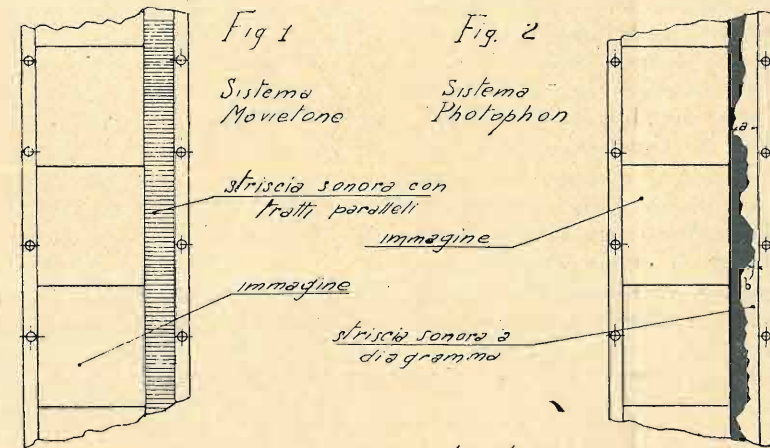 Fig 1
Sistema
Movietone
striscia sonora con
tratti paralleli
immagine
Fig. 2
Sistema
Photophon
immagine
striscia sonora a
diagramma
a
b